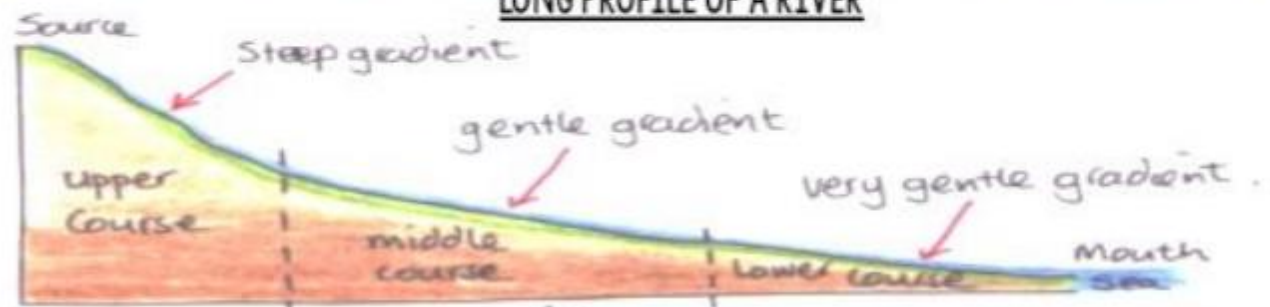 LONG PROFILE OF A RIVER
Source
Steep gradient
gentle gradient
very gentle gradient.
upper
Course
middle
course
Lower course
Mouth
sea